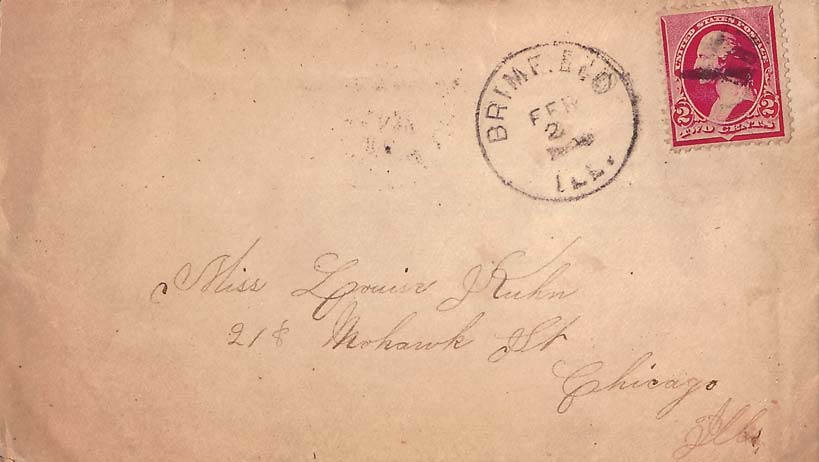 BRIMFIELD
FEB
2
ILL.
UNITED STATES POSTAGE
2 2
TWO CENTS
Miss Louise Kuhn
218 Mohawk St
Chicago
Ills